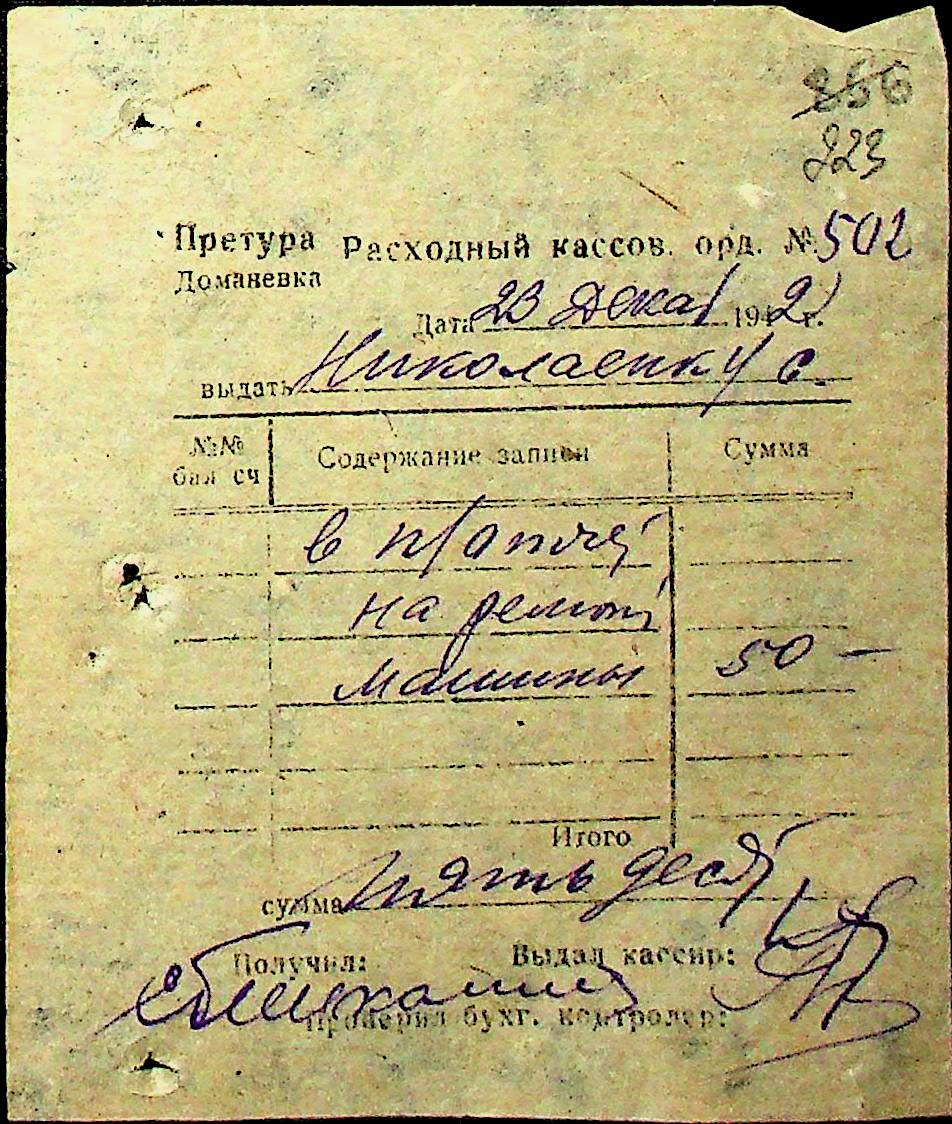 866
223
Претура Расходный кассов. орд. № 502
Доманевка
Дата 23 Декаб 1942 г.
выдать Николаенку С.
№№ бал сч Содержание записи Сумма
в
на ремонт
машины 50 —
Итого
сумма Пять десят
Получил: Выдал кассир:
Проверил бухг. контролер: